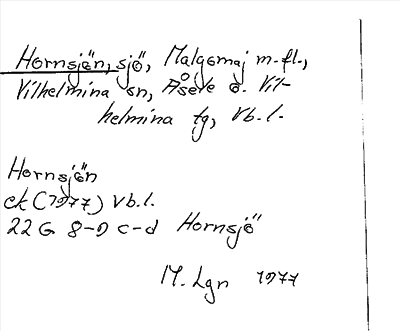 Hornsjön, sjö, Malgomaj m.fl.,
Vilhelmina sn, Åsele o. Vil-
helmina tg, Vb.l.
Hornsjön
ek (1977) Vb.l.
22 G 8-9 c-d Hornsjö
M. Lgn 1977